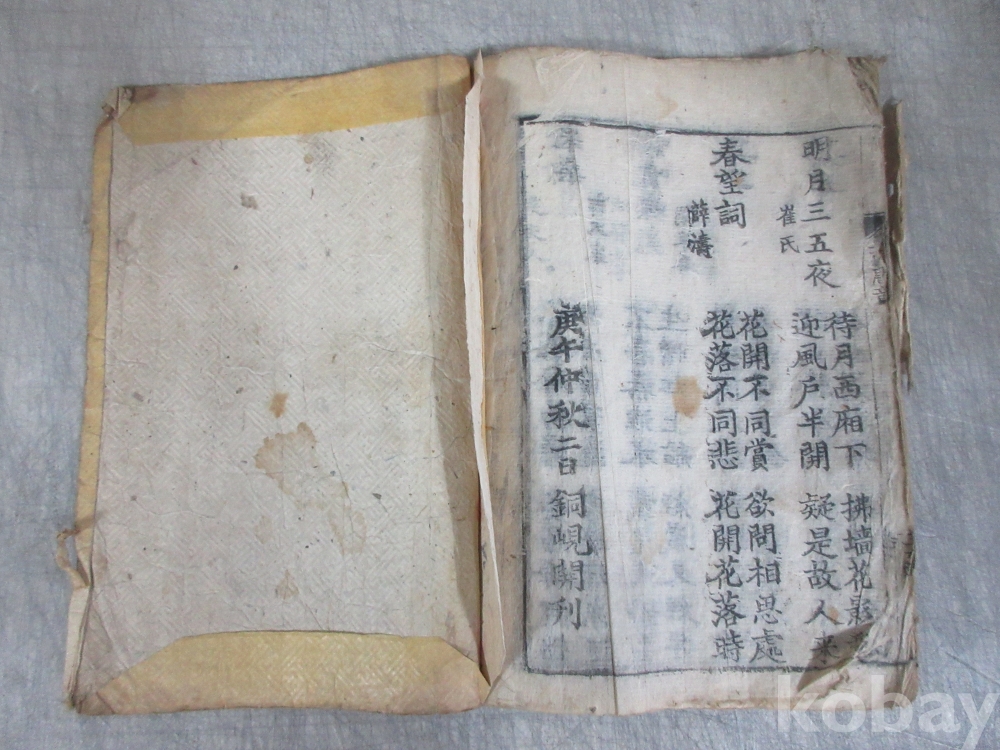 明月三五夜
崔氏
待月西廂下 拂墻花影
迎風戶半開 疑是故人来
春望詞
薛濤
花開不同賞 欲問相思處
花落不同悲 花開花落時
庚午仲秋二日 銅峴開刊
kobay